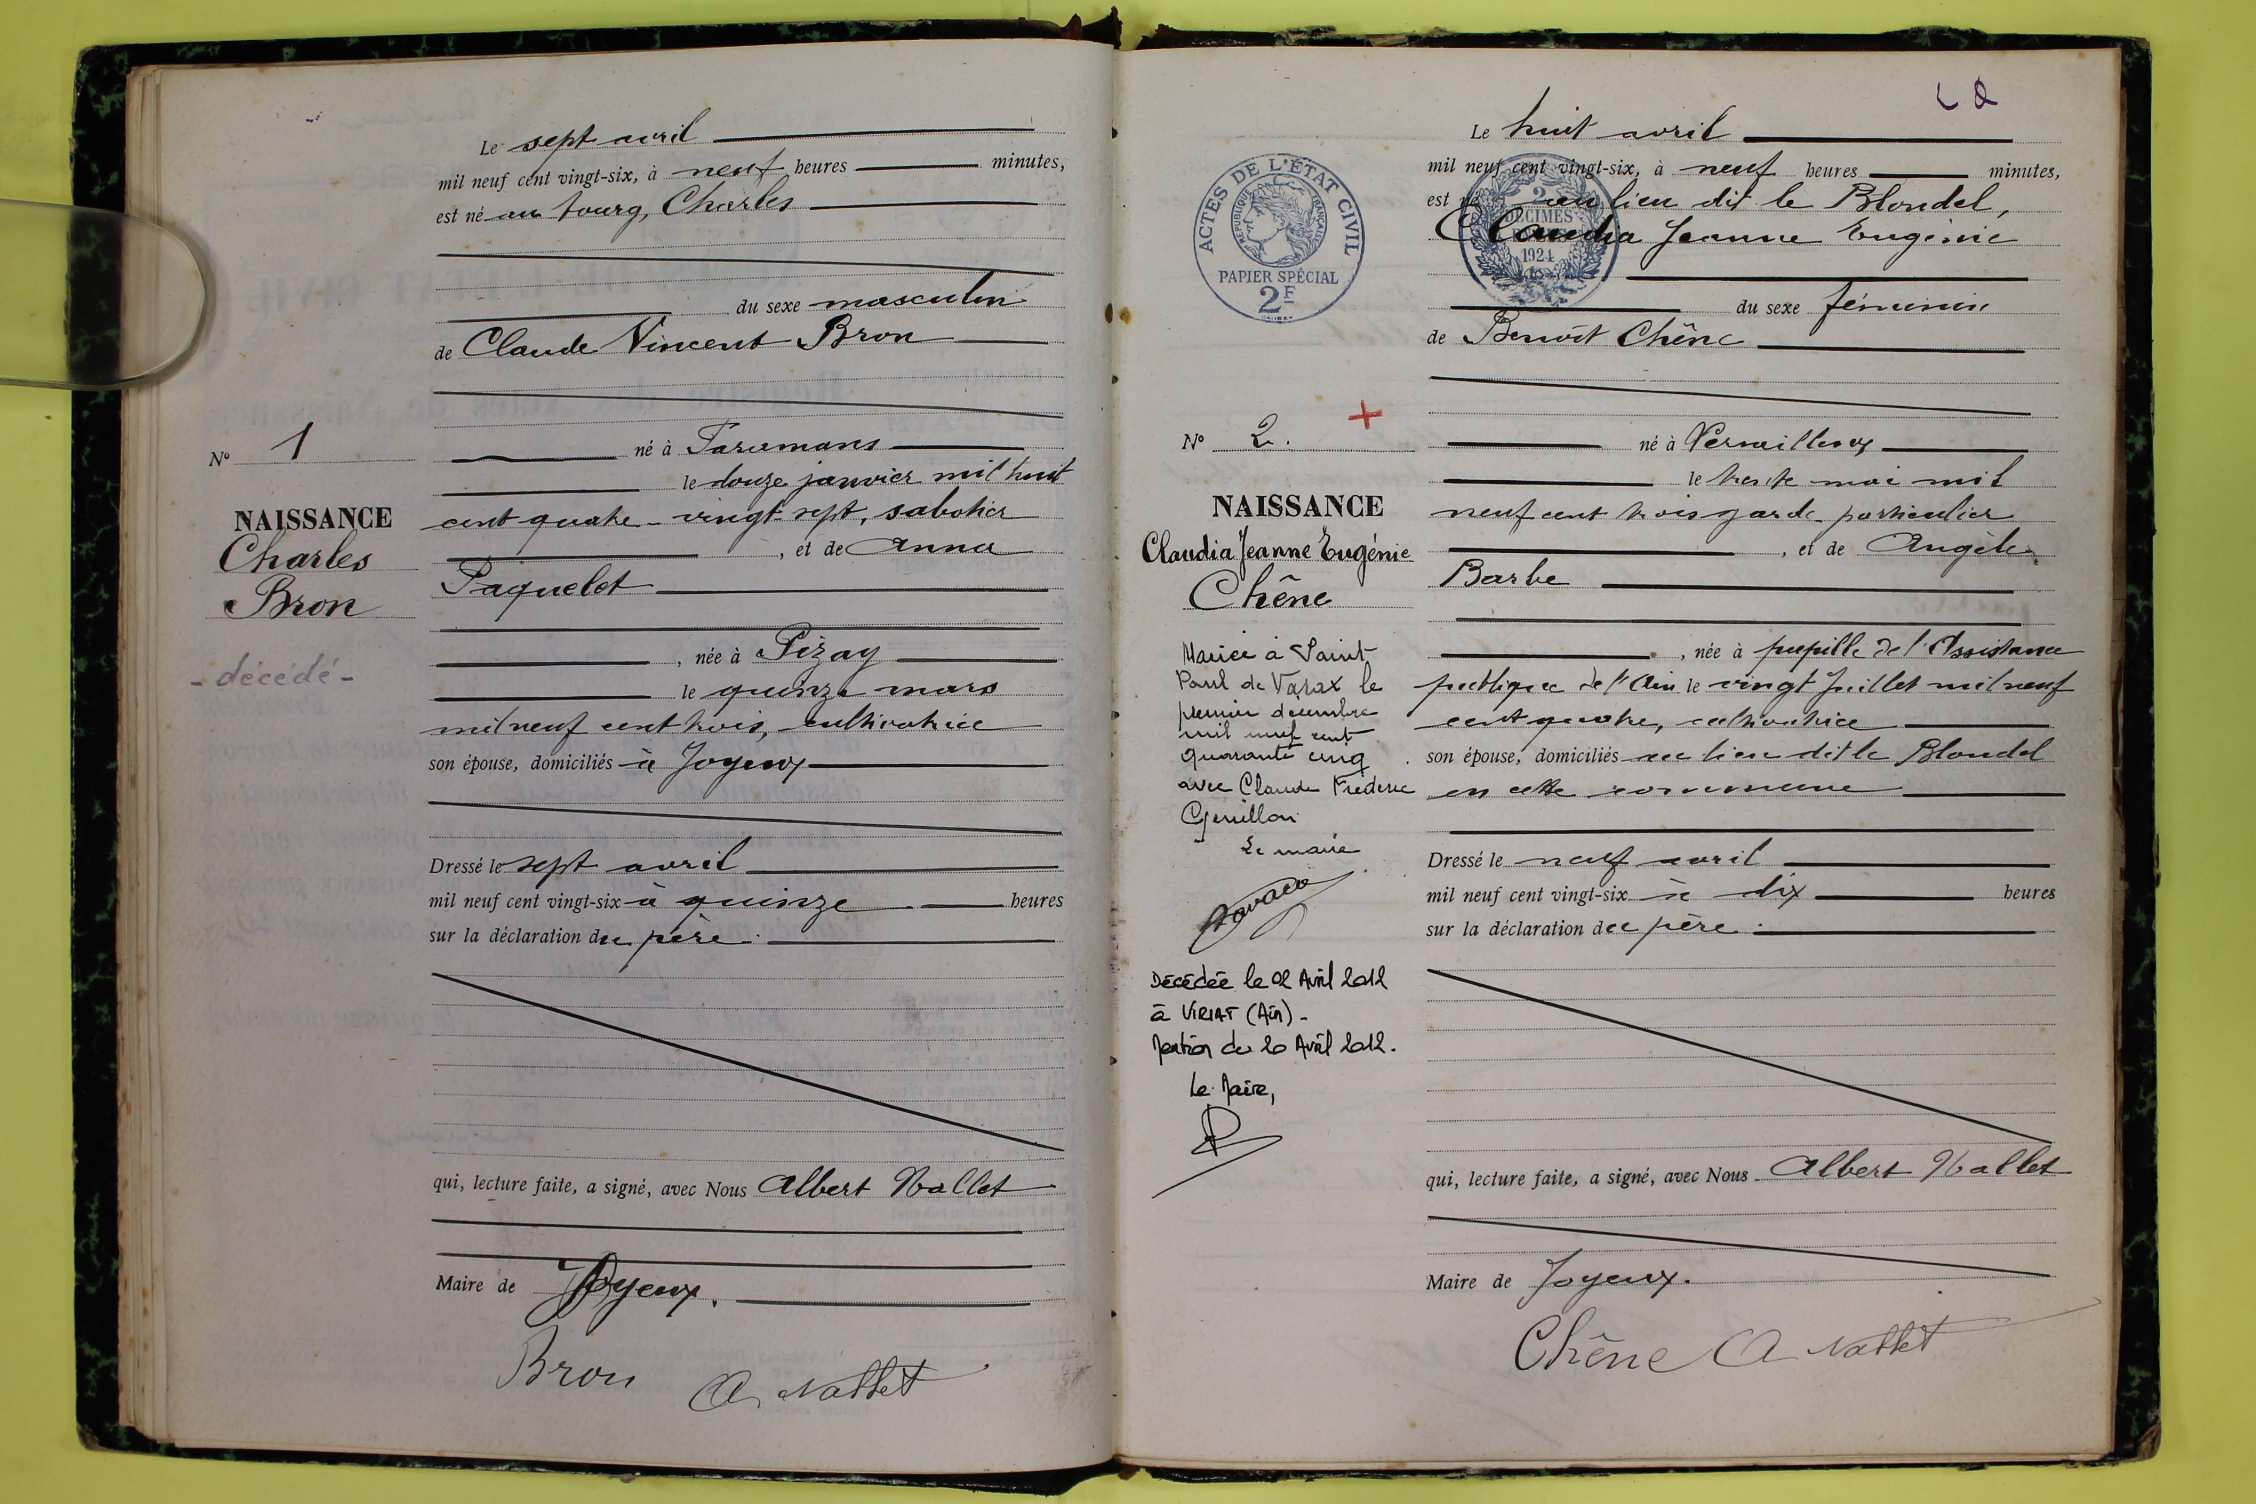 Le sept avril
mil neuf cent vingt-six, à neuf heures minutes,
est né au bourg, Charles
du sexe masculin
de Claude Vincent Bron
né à Faramans
le douze janvier mil huit
cent quatre-vingt-sept, sabotier
, et de Anna
Paquelet
, née à Pizay
le quinze mars
mil neuf cent trois, cultivatrice
son épouse, domiciliés à Joyeux
Dressé le sept avril
mil neuf cent vingt-six à quinze heures
sur la déclaration du père.
qui, lecture faite, a signé, avec Nous Albert Nallet
Maire de Joyeux.
Bron A Nallet
N° 1
NAISSANCE
Charles
Bron
- décédé -
Le huit avril
mil neuf cent vingt-six, à neuf heures minutes,
est né au lieu dit le Blondel,
Claudia Jeanne Eugénie
du sexe féminin
de Benoît Chêne
né à Versailleux
le trente mai mil
neuf cent trois garde-particulier
, et de Angèle
Barbe
, née à pupille de l'Assistance
publique de l'Ain le vingt Juillet mil neuf
cent quatre, cultivatrice
son épouse, domiciliés au lieu dit le Blondel
en cette commune
Dressé le neuf avril
mil neuf cent vingt-six à dix heures
sur la déclaration du père.
qui, lecture faite, a signé, avec Nous Albert Nallet
Maire de Joyeux.
Chêne A Nallet
ACTES DE L'ÉTAT CIVIL
RÉPUBLIQUE FRANÇAISE
PAPIER SPÉCIAL
2F
2
DÉCIMES
1924
N° 2.
NAISSANCE
Claudia Jeanne Eugénie
Chêne
Mariée à Saint
Paul de Varax le
premier décembre
mil neuf cent
quarante cinq
avec Claude Frédéric
Genillon
Le maire
Décédée le 02 Avril 2012
à VIRIAT (Ain) -
Mention du 20 Avril 2012.
Le Maire,